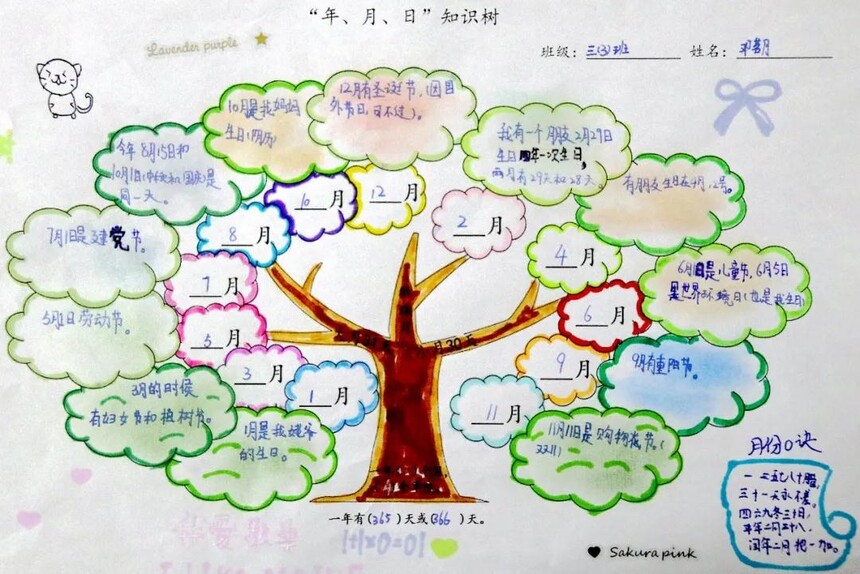 “年、月、日”知识树
Lavender purple
班级：三(3)班 姓名：
12月有圣诞节，(因国
外节日，可不过)。
10月是我妈妈
生日(阴历)
我有一个朋友2月29日
生日四年一次生日，
两月有29天和28天。
今年8月15日和
10月1日(中秋和国庆)是
同一天。
有朋友生日在4月12号。
10月
12月
2月
8月
4月
7月1日是建党节。
6月1日是儿童节，6月5日
是世界环境日(也是我生日)
7月
6月
5月1日劳动节。
5月
30天
9月有重阳节。
3月
9月
1月
3月的时候
有妇女节和植树节。
11月
1月是我姥爷
的生日。
11月11日是购物狂节。(
月份口诀
一三五七八十腊，
三十一天永不差。
四六九冬三十日，
平年二月二十八，
闰年二月把一加。
一年有(365)天或(366)天。
Sakura pink